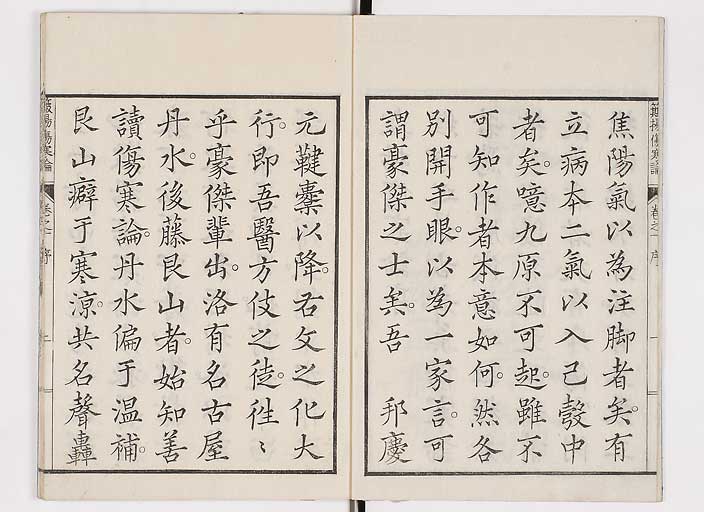 焦陽氣以為注脚者矣。有
立病本二氣以入己彀中
者矣。噫九原不可起。雖不
可知作者本意如何。然各
別開手眼。以為一家言。可
謂豪傑之士矣。吾 邦慶
元鞬櫜以降。右文之化大
行。即吾醫方伎之徒。徃〻
乎豪傑輩出。洛有名古屋
丹水。後藤艮山者。始知善
讀傷寒論。丹水偏于温補。
艮山癖于寒涼。共名聲轟
傷寒論 卷之一 序 一
傷寒論 卷之一 序 二